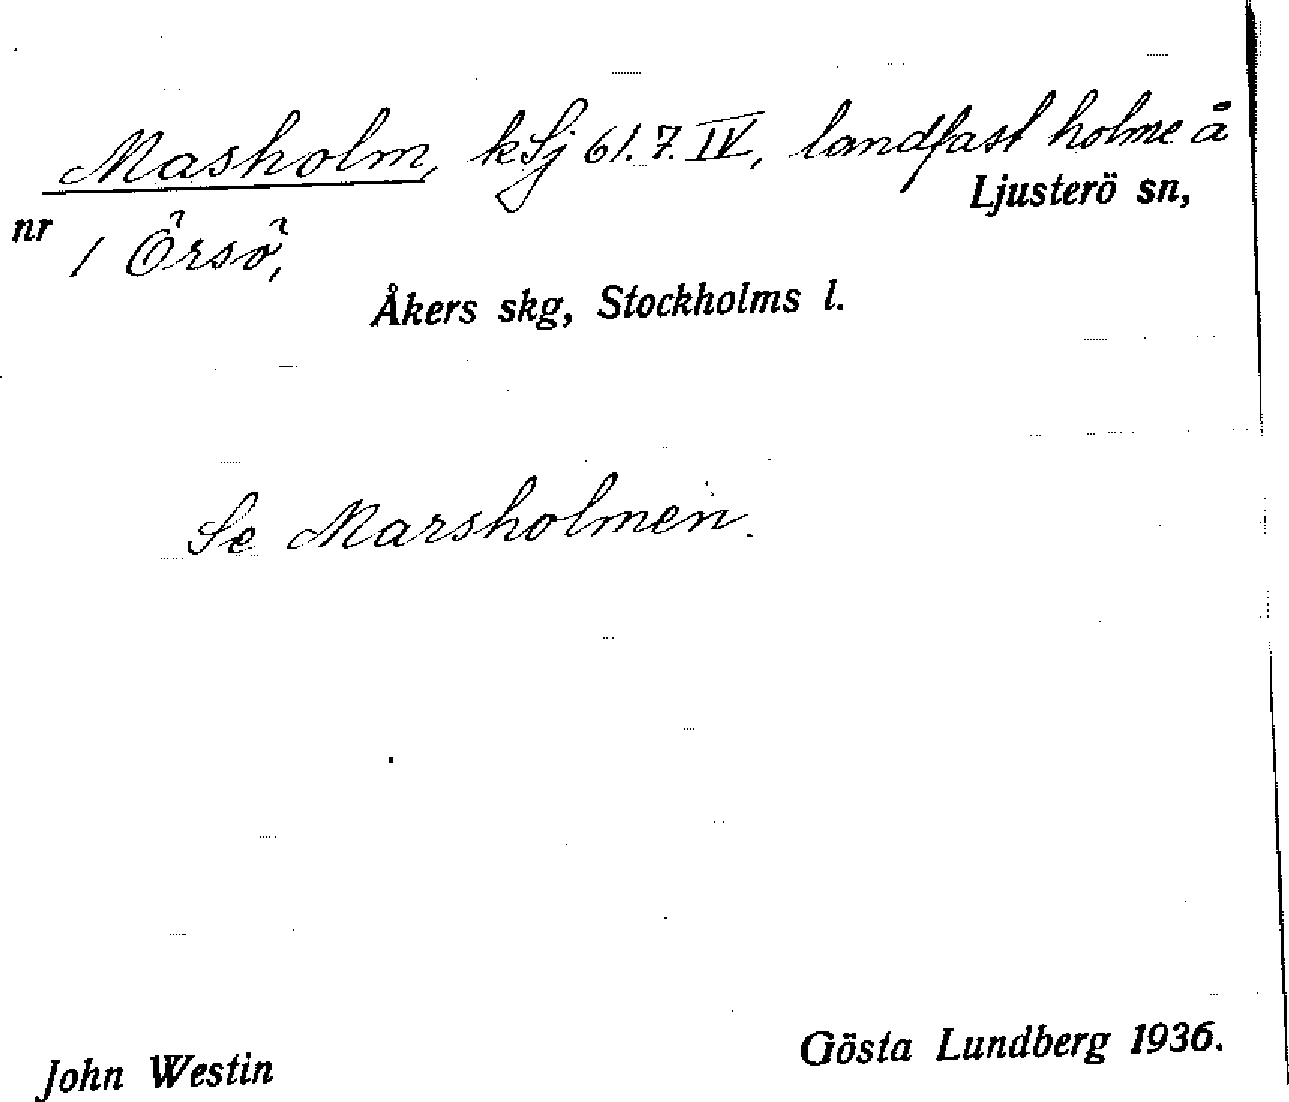 Masholm, kSj 61.7.IV, landfast holme å
Ljusterö sn,
nr 1 Örsö,
Åkers skg, Stockholms l.
Se Marsholmen.
John Westin Gösta Lundberg 1936.